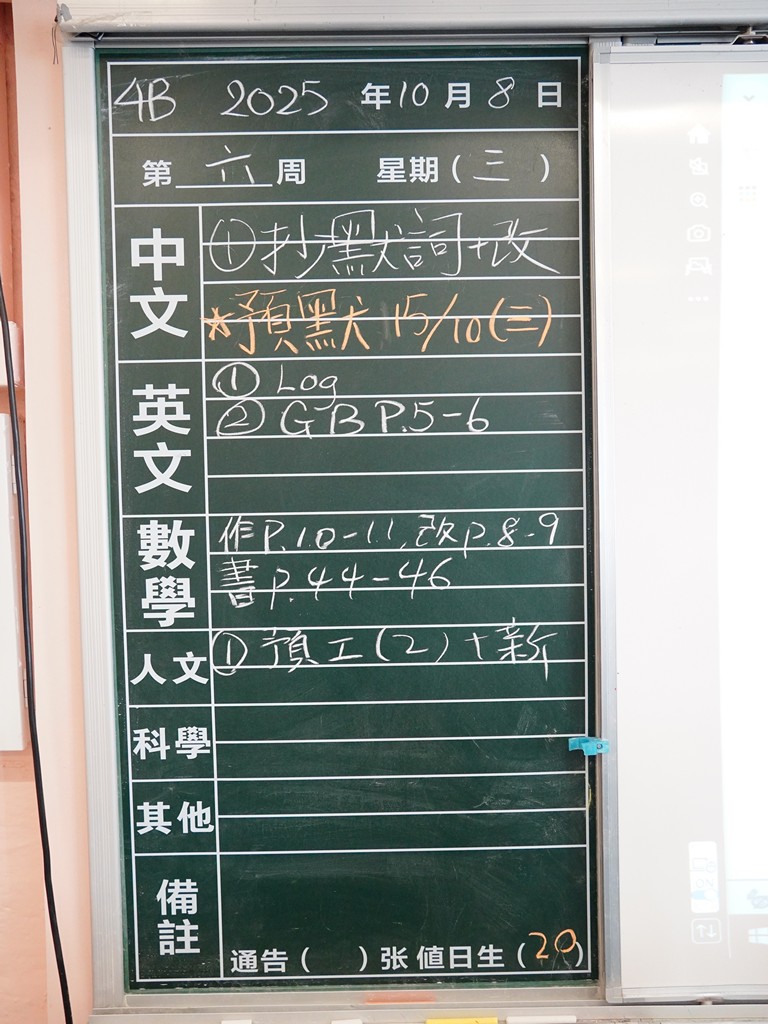 4B 2025 年 10 月 8 日
第 六 周 星期 ( 三 )
中文
① 抄默詞+改
*預默 15/10(三)
英文
① Log
② GB P.5-6
數學
作P.10-11,改P.8-9
書P.44-46
人文
① 預工(2)+新
科學
其他
備註
通告 ( ) 张 值日生 (20)